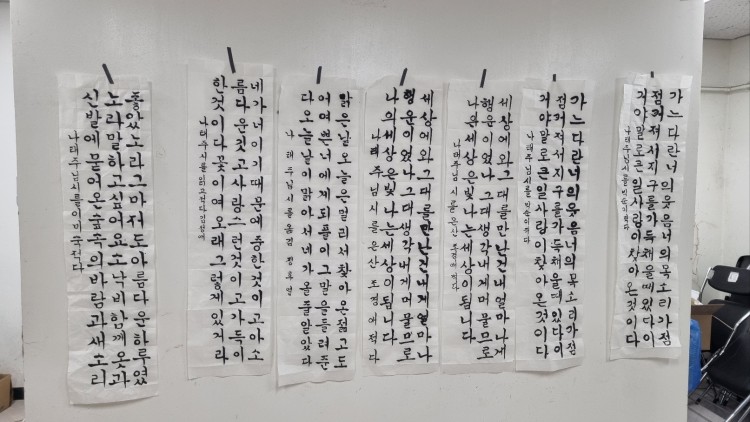 가느다란너의웃음너의목소리가점
점커져서지구를가득채울때있다이
거야말로큰일사랑이찾아온것이다
나태주님시를
가느다란너의웃음너의목소리가점
점커져서지구를가득채울때있다이
거야말로큰일사랑이찾아온것이다
나태주님시를
세상에와그대를만난건내얼마나
행운이었나그대생각내게머물므로
나의세상은빛나는세상이됩니다
나태주님시를은산
세상에와그대를만난건내게얼마나
행운이었나그대생각내게머물므로
나의세상은빛나는세상이됩니다
나태주님시를은산조경애적다
맑은날오늘은멀리서찾아온젊고도
어여쁜너에게되풀이그말을들려준
다오늘날이맑아서네가올줄알았다
나태주님시를옮김
네가너이기때문에중한것이고아소
름다운것고사랑스런것이고가득이
한것이다꽃이여오래그렇게있거라
나태주시를
좋았노라그마저도아름다운하루였
노라말하고싶어요소낙비함께옷과
신발에묻어온숲속의바람과새소리
나태주님시를